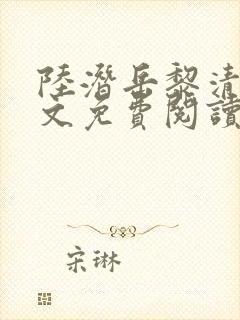 陸潛岳黎清
文免費閱讀
宋琳